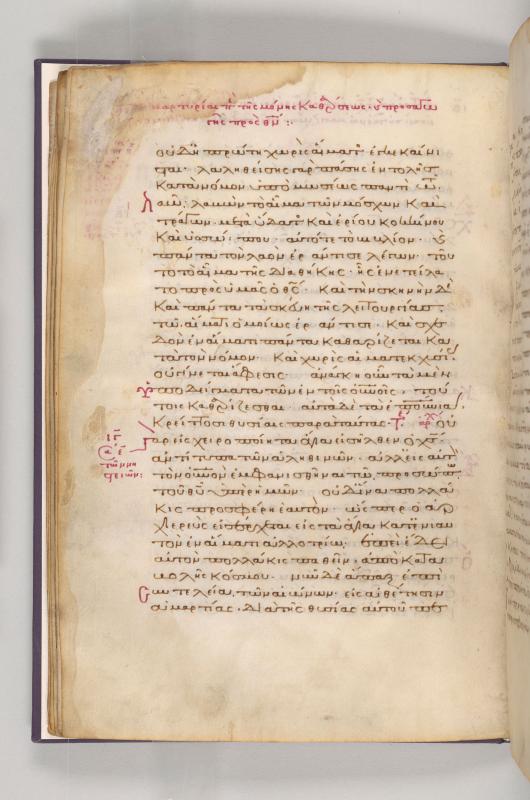 τῆς μόνης καθάρσεως
τῆς πρὸς θν :·
οὐδὲ ἡ πρώτη χωρὶς αἵματος ἐγκεκαίνι
σται· λαληθείσης γὰρ πάσης ἐντολῆς
κατὰ νόμον ὑπὸ μωϋσέως παντὶ τῶ
λαῶ, λαβὼν τὸ αἷμα τῶν μόσχων καὶ
τράγων· μετὰ ὕδατος καὶ ἐρίου κοκκίνου
καὶ ὑσσώπου· αὐτό τε τὸ βιβλίον· καὶ
πάντα τὸν λαὸν ἐράντισε λέγων· τοῦ
το τὸ αἷμα τῆς διαθήκης· ἧς ἐνετείλα
το πρὸς ὑμᾶς ὁ θς· καὶ τὴν σκηνὴν δὲ
καὶ πάντα τὰ σκεύη τῆς λειτουργίας
τῶ αἵματι ὁμοίως ἐράντισε· καὶ σχε
δὸν ἐν αἵματι πάντα καθαρίζεται κα
τὰ τὸν νόμον· καὶ χωρὶς αἱματεκχυσίας
οὐ γίνεται ἄφεσις· ἀνάγκη οὖν τὰ μὲν
ὑποδείγματα τῶν ἐν τοῖς οὐνοῖς· τού
τοις καθαρίζεσθαι· αὐτὰ δὲ τὰ ἐπουράνια
κρείττοσι θυσίαις παρὰ ταύτας· οὐ
γὰρ εἰς χειροποίητα ἅγια εἰσῆλθεν ὁ χς·
ἀντίτυπα τῶν ἀληθινῶν· ἀλλ' εἰς αὐτὸν
τὸν οὐνὸν ἐμφανισθῆναι τῶ προσώπω
τοῦ θυ ὑπὲρ ἡμῶν· οὐδ' ἵνα πολλά
κις προσφέρη ἑαυτόν· ὥσπερ ὁ ἀρ
χιερεὺς εἰσέρχεται εἰς τὰ ἅγια κατ' ἐνιαυ
τὸν ἐν αἵματι ἀλλοτρίω, ἐπεὶ ἔδει
αὐτὸν πολλάκις παθεῖν· ἀπὸ κατα
βολῆς κόσμου· νῦν δὲ ἅπαξ ἐπὶ
συντελεία τῶν αἰώνων· εἰς ἀθέτησιν
ἁμαρτίας· διὰ τῆς θυσίας αὐτοῦ